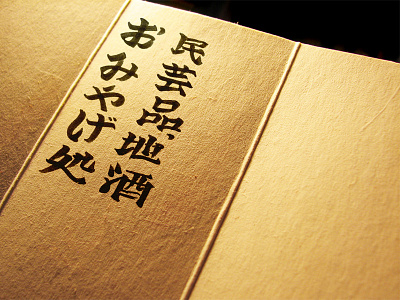 民芸品、地酒
おみやげ処